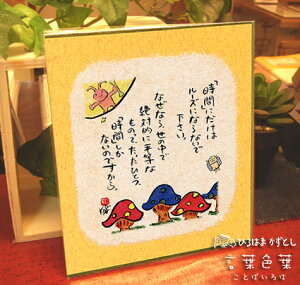 「時間」にだけは
ルーズにならないで
下さい。
なぜなら、世の中で
絶対的に平等な
ものって、たったひとつ、
「時間」しか
ないのですから。
ひろはま かずとし
言葉色葉
ことばいろは